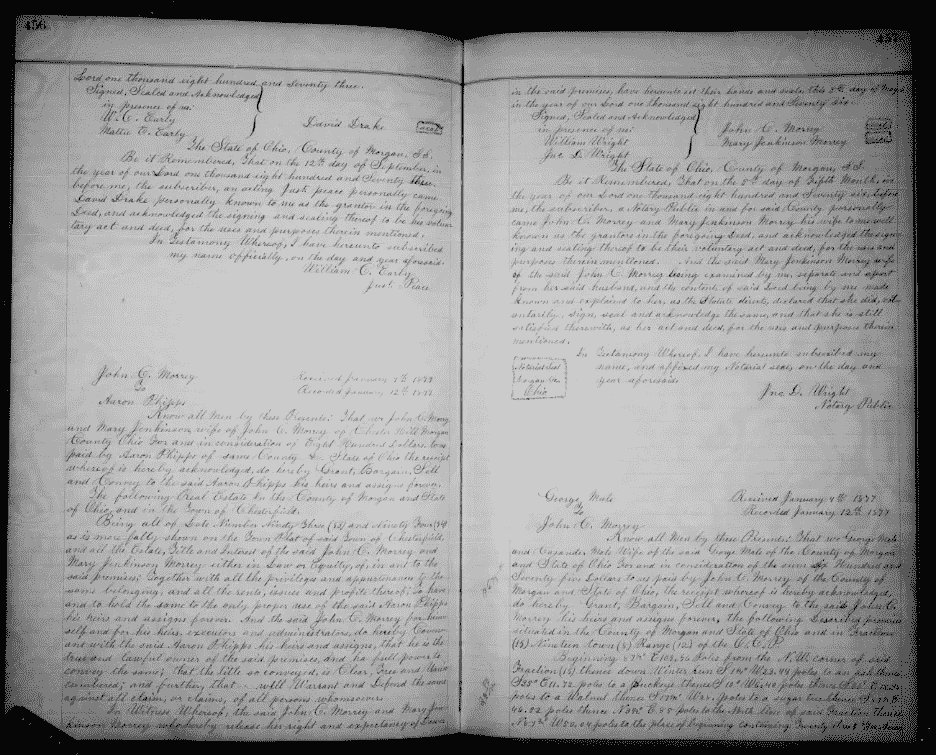 456
Lord one thousand eight hundred and Seventy three.
Signed, Sealed and Acknowledged
in presence of us:
W. C. Early
Mattie C. Early
David Drake
Seal
The State of Ohio, County of Morgan, SS.
Be it Remembered, That on the 12th day of September, in
the year of our Lord one thousand eight hundred and Seventy three
before me, the subscriber, an acting Just. peace personally came
David Drake personally known to me as the grantor in the foregoing
Deed, and acknowledged the signing and sealing thereof to be his volun
tary act and deed, for the uses and purposes therein mentioned.
In Testamony Whereof, I have hereunto subscribed
my name officially, on the day and year aforesaid.
William C. Early
Just. Peace
John C. Morrey
To
Aaron Phipps
Received January 7th 1877
Recorded January 12th 1877
Know all Men by these Presents: That we John C. Morrey
and Mary Jenkinson, wife of John C. Morrey of Morgan
County Ohio for and in consideration of Eight Hundred Dollars to us
paid by Aaron Phipps of same County & State of Ohio the receipt
whereof is hereby acknowledged, do hereby Grant, Bargain, Sell
and Convey to the said Aaron Phipps his heirs and assigns forever
The following Real Estate in the County of Morgan and State
of Ohio, and in the Town of Chesterfield.
Being all of Lots Number Ninety Three (93) and Ninety Four (94
as is more fully shown on the Town Plat of said Town of Chesterfield
and all the Estate, Title and Interest of the said John C. Morrey and
Mary Jenkinson Morrey either in Law or Equity, of, in and to the
said premises; Together with all the privileges and appurtenances to the
same belonging, and all the rents, issues and profits thereof; To have
and to hold the same to the only proper use of the said Aaron Phipps
his heirs and assigns forever. And the said John C. Morrey for him
self and for his heirs, executors and administrators, do hereby Coven
ant with the said Aaron Phipps his heirs and assigns, that he is the
true and lawful owner of the said premises, and has full power to
convey the same; that the title so conveyed, is Clear, Free and Unin
cumbered; and further, that will Warrant and Defend the same
against all claim, or claims, of all persons whomsoever.
In Witness Whereof, the said John C. Morrey and Mary Jen
kinson Morrey who hereby release her right and expectancy of Dower
in the said premises, have hereunto set their hands and seals, this 5th day of
in the year of our Lord one thousand eight hundred and Seventy six.
Signed, Sealed and Acknowledged
in presence of us:
William Wright
Jno. D. Wright
John C. Morrey
Mary Jenkinson Morrey
The State of Ohio, County of Morgan, S.S.
Be it Remembered, That on the 5th day of Fifth Month, in
the year of our Lord one thousand eight hundred and Seventy six, before
me, the subscriber, a Notary Public in and for said County personally
came John C. Morrey and Mary Jenkinson Morrey his wife to me well
known as the grantors in the forgoing Deed, and acknowledged the sign
ing and sealing thereof to be their voluntary act and deed, for the uses and
purposes therein mentioned. And the said Mary Jenkinson Morrey wife
of the said John C. Morrey being examined by me, separate and apart
from her said husband, and the contents of said Deed being by me made
known and explained to her, as the Statute directs, declared that she did, vol
untarily, sign, seal and acknowledge the same, and that she is still
satisfied therewith, as her act and deed, for the uses and purposes therein
mentioned.
In Testamony Whereof, I have hereunto subscribed my
name, and affixed my Notarial seal, on the day and
year aforesaid.
Notarial Seal
Morgan Co.
Ohio
Jno. D. Wright
Notary Public
George Male
To
John C. Morrey
Received January 7th 1877
Recorded January 12th 1877
Know all Men by these Presents: That we George Male
and Wife of the said George Male of the County of Morgan
and State of Ohio for and in consideration of the sum of Hundred and
Seventy five Dollars to us paid by John C. Morrey of the County of
Morgan and State of Ohio, the receipt whereof is hereby acknowledged,
do hereby Grant, Bargain, Sell and Convey to the said John C.
Morrey his heirs and assigns forever, the following Described premises
situated in the County of Morgan and State of Ohio and in Fraction
(15) Nineteen town (8) Range (12) of the
Beginning Poles from the N.W. corner of said
Fraction (15) thence down run poles to an ash thence
poles to a thence poles thence
poles to a Walnut thence poles to a sugar tree thence
poles to the North line of said Fraction thence
poles to the place of beginning containing Twenty